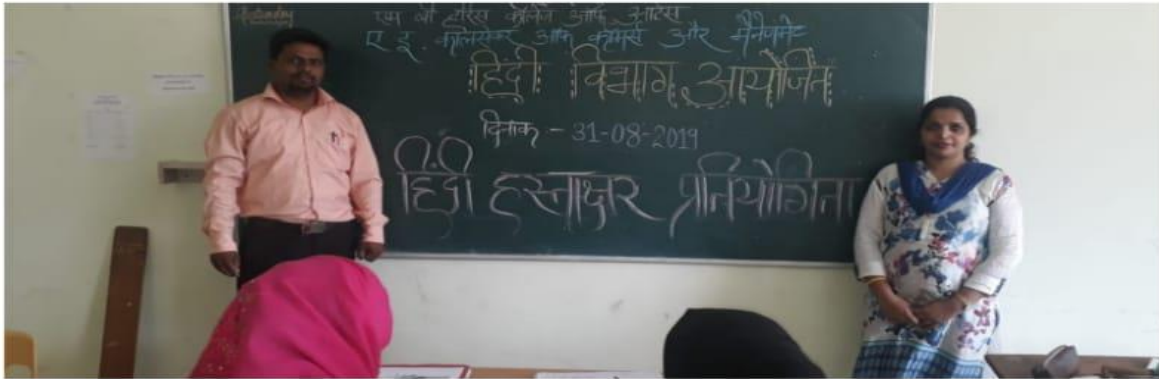 एम बी हॅरिस कॉलेज ऑफ आर्टस
ए. ई. कालसेकर ऑफ कॉमर्स और मॅनेजमेंट
हिंदी विभाग आयोजित
दिनांक - 31-08-2019
हिंदी हस्ताक्षर प्रतियोगिता